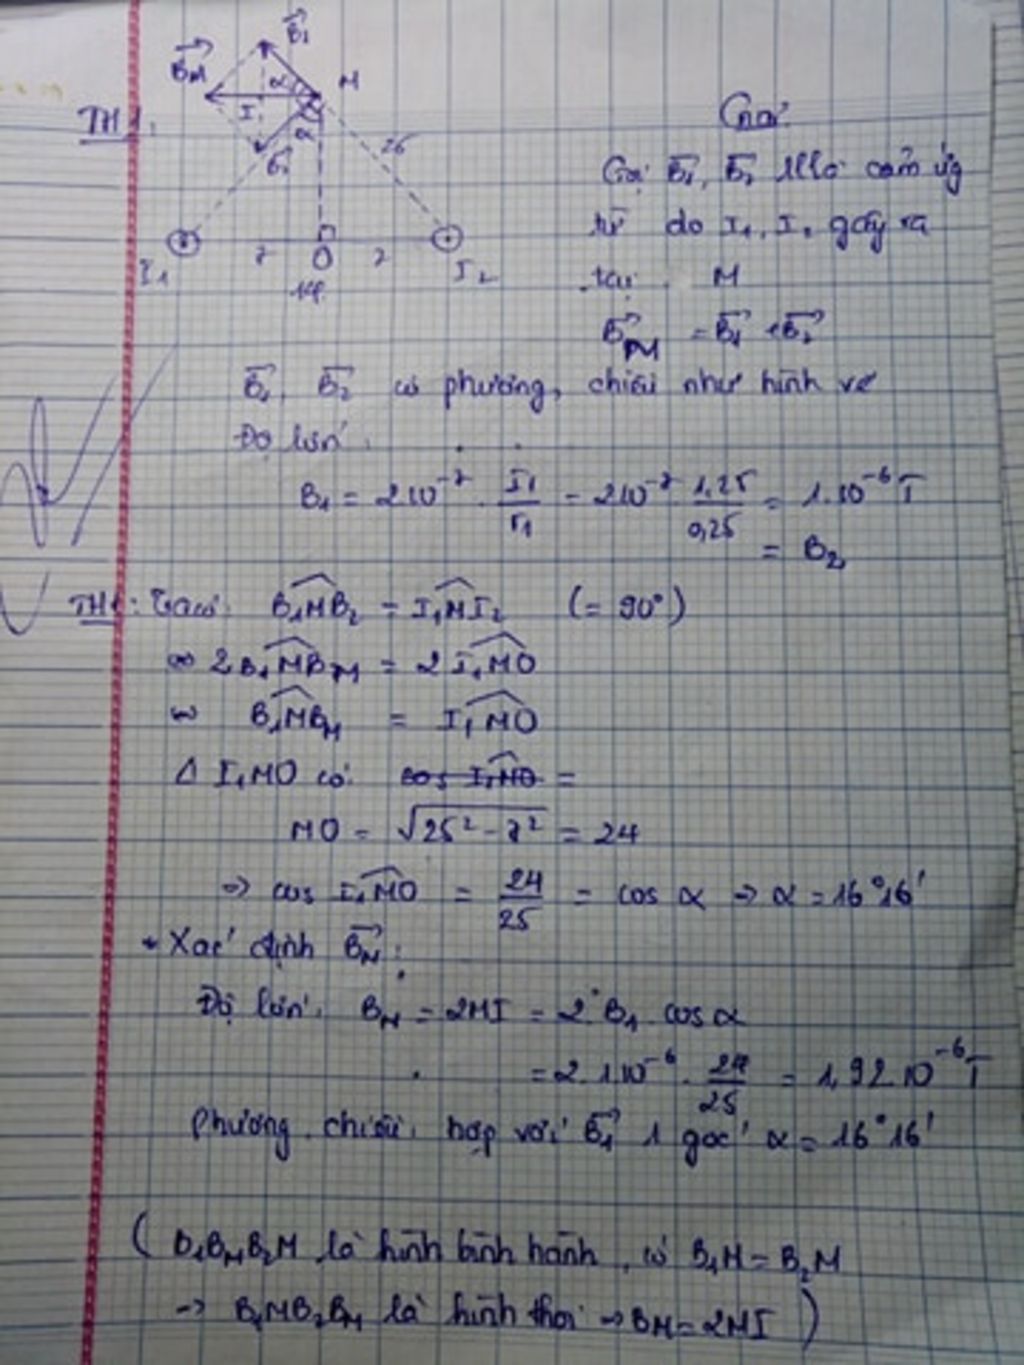 B₁
B_M
M
α
TH1:
I
α
25
B₂
7
O
7
I₁
I₂
14
Giải
Gọi B₁, B₂ lllà cảm ứg
từ do I₁, I₂ gây ra
tại M
B_M = B₁ + B₂
B₁, B₂ có phương, chiều như hình vẽ
Độ lớn:
B₁ = 2.10⁻⁷ . I₁/r₁ = 2.10⁻⁷ 1,25/0,25 = 1.10⁻⁶ T
= B₂
TH1: Ta có: B₁MB₂ = I₁MI₂ (= 90°)
⇔ 2B₁MB_M = 2 I₁MO
⇔ B₁MB_M = I₁MO
Δ I₁MO có: cos I₁MO =
MO = √25² - 7² = 24
⇒ cos I₁MO = 24/25 = cos α ⇒ α = 16°16'
* Xác định B_M:
Độ lớn: B_M = 2MI = 2 B₁ cos α
= 2.1.10⁻⁶ . 24/25 = 1,92.10⁻⁶ T
Phương. chiều: hợp với B₁ 1 góc α = 16°16'
( B₁B_MB₂M là hình bình hành, có B₁M = B₂M
→ B₁MB₂B_M là hình thoi → B_M = 2MI )